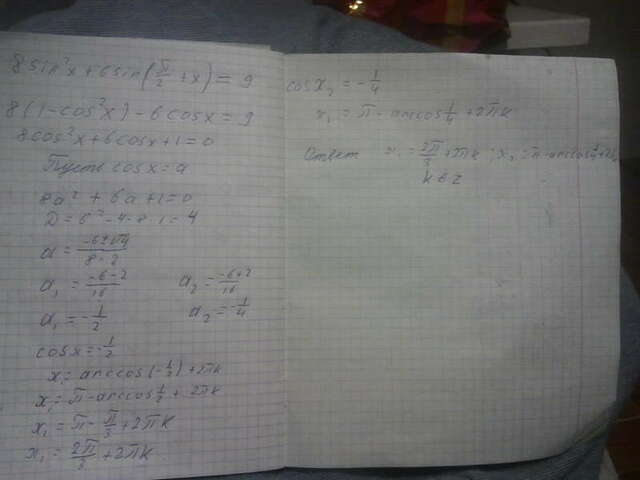 8sin²x+6sin(π/2+x)=9
8(1-cos²x)-6cosx=9
8cos²x+6cosx+1=0
Пусть cosx=a
8a²+6a+1=0
D=6²-4·8·1=4
a=(-6±√4)/(8·2)
a₁=(-6-2)/16 a₂=(-6+2)/16
a₁=-1/2 a₂=-1/4
cosx=-1/2
x₁=arccos(-1/2)+2πk
x₁=π-arccos1/2+2πk
x₁=π-π/3+2πk
x₁=2π/3+2πk
cosx₂=-1/4
x₁=π-arccos1/4+2πk
Ответ x₁=2π/3+2πk; x₂=π-arccos1/4+2πk
k∈z